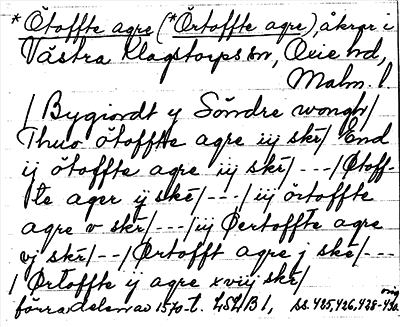 * Ötoffte agre (*Örtoffte agre), åkrar i
Västra Klagstorps sn, Oxie hd,
Malm. l
/ Bygiordt y Söndre wongh /
Thuo ötoffte agre iij skr/ End
ij ötoffte agre iij skr/ ---/ Øtoff-
te ager ij skr/ ---/ iij örtoffte
agre v skr/ ---/ iij Øertoffte agre
vj skr/ --/ Örtofft agre j skr/ ---
/ Örtoffte ij agre xvij skr/
förra delen av 1570-t. LSLB 1, ss. 425, 426, 428-430